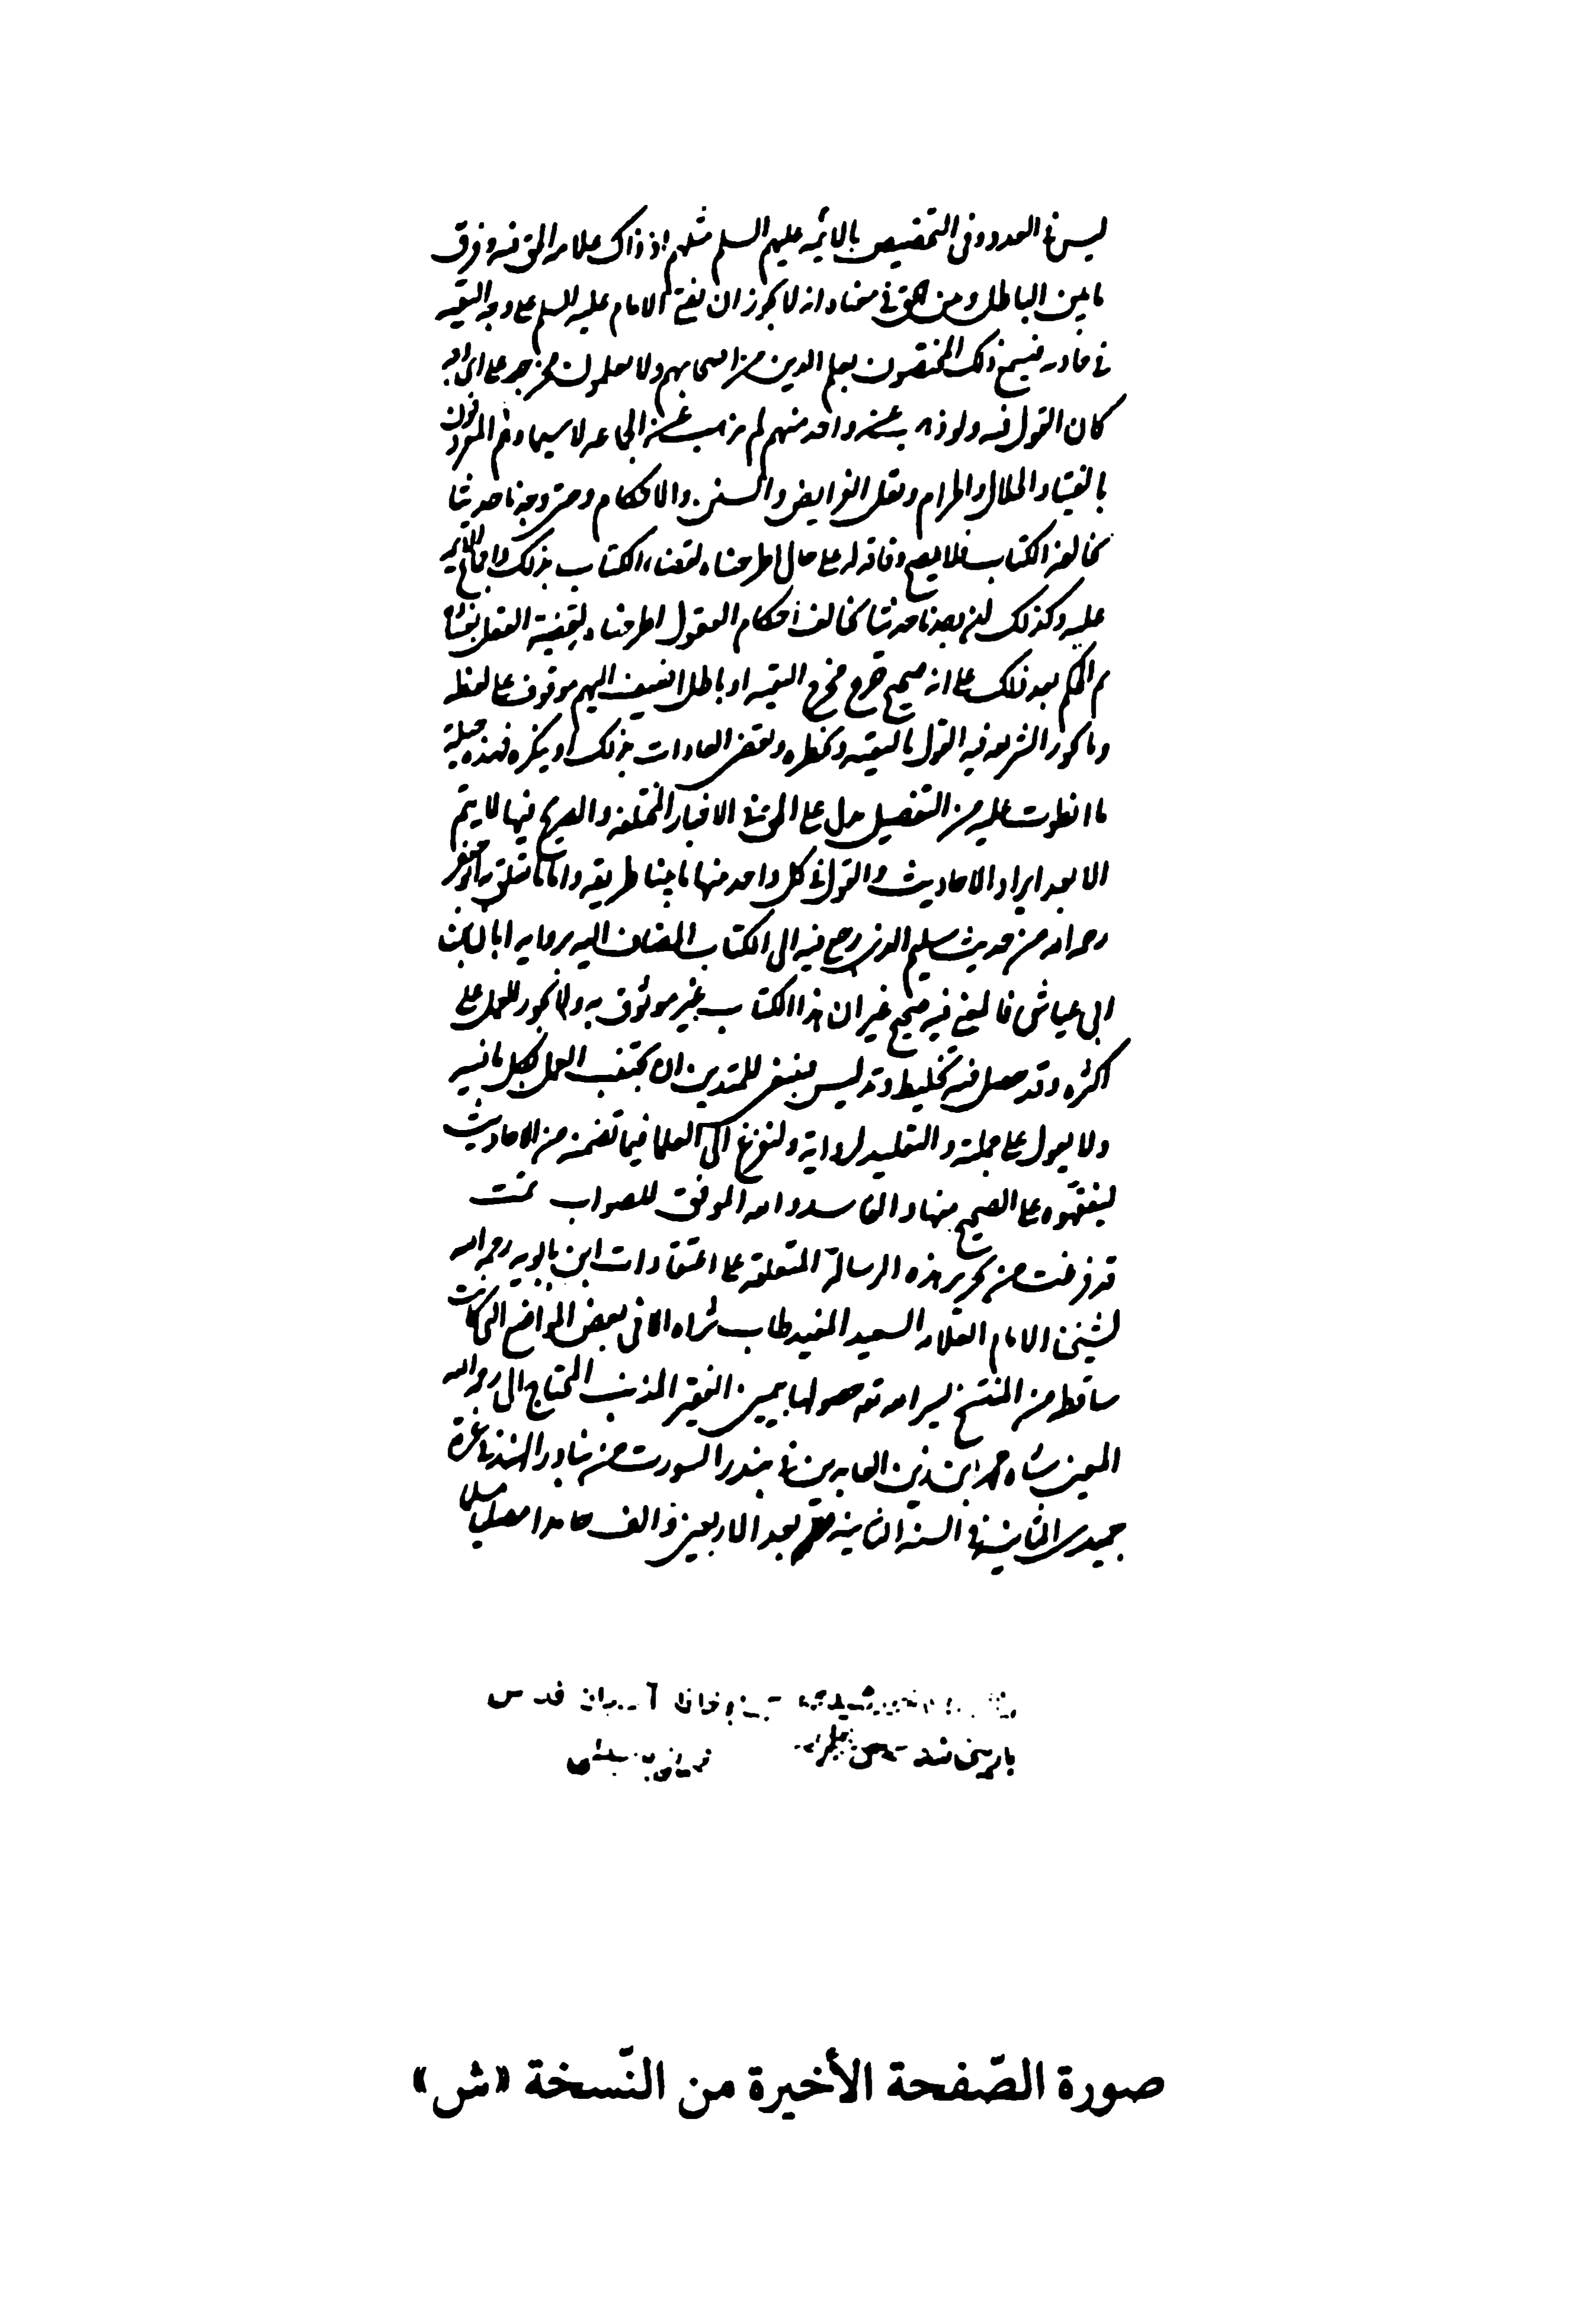 ليس في العدد وفي التخصيص بالائمه عليهم السلم مثلهم اذ ذاك علامه الحق فيه وفرق
ما بين الباطل وبين الحق في معناه وانه لا يجوز ان يفتي الامام عليه السلم على وجه التقيه
في حادثه فيسمع ذلك المختصون بعلم الدين من اصحابهم ولا يعلمون مخرجه على اى وجه
كان القول فيه ولو ذهب عن واحد منهم لم يذهب عن الجماعه لا سيما وهم المعروفون
بالفتيا والحلال والحرام ونقل الفرايض والسنن والاحكام ومتى وجدنا حديثا
يخالفه الكتاب فلا يصح وفاقه له على حال اطرحناه لقضاء الكتاب بذلك واجماع الائمه
عليه وكذلك ان وجدنا حديثا يخالف احكام العقول اطرحناه لقضيه العقل بفساده
ثم الحكم بعد ذلك على انه صحيح خرج مخرج التقيه او باطل اضيف اليهم موقوف على لفظه
وما تجوز الشريعه فيه القول بالتقيه وتحظره وتقضى العادات بذلك او تنكره فهذه جملة
ما انطوت عليه من التفصيل يدل على الحق في الاخبار المختلفه والصريح فيها لا يتم
الا بعد ايراد الاحاديث والقول في كل واحد منها ما بينا طريقه واما ما تعلق به ابو جعفر
رحمه الله من حديث سليم الذى رجع فيه الى الكتاب المضاف اليه بروايه ابان بن
ابى عياش فالمعنى فيه صحيح غير ان هذا الكتاب غير موثوق به ولا يجوز العمل على
اكثره وقد حصل فيه تخليط وتدليس فينبغى للمتدين ان يجتنب العمل بكل ما فيه
ولا يعول على جملته والتقليد لرواته وليفزع الى العلما فيما تضمنه من الاحاديث
ليفقهوه على الصحيح منها والفاسد والله الموفق للصواب تمت
قد فرغت من تحرير هذه الرسالة المتعلقه على اعتقادات ابن بابويه رحمه الله
لشيخنا الامام العلامه السعيد المفيد طاب ثراه الا في بعض المواضع التى كانت
ساقطه من المنتسخ يسر الله حصولها بيمين الفقير المذنب المحتاج الى رحمه الله
المعين شاه محمد ابن زين العابدين في بندر السورت من بنادر الهند في غرة
جميدى الثانيه في السنه الثانيه بعد الاربعين و الف حامدا مصليا مسلما
آستان قدس
صورة الصّفحة الأخيرة من النّسخة «ش»